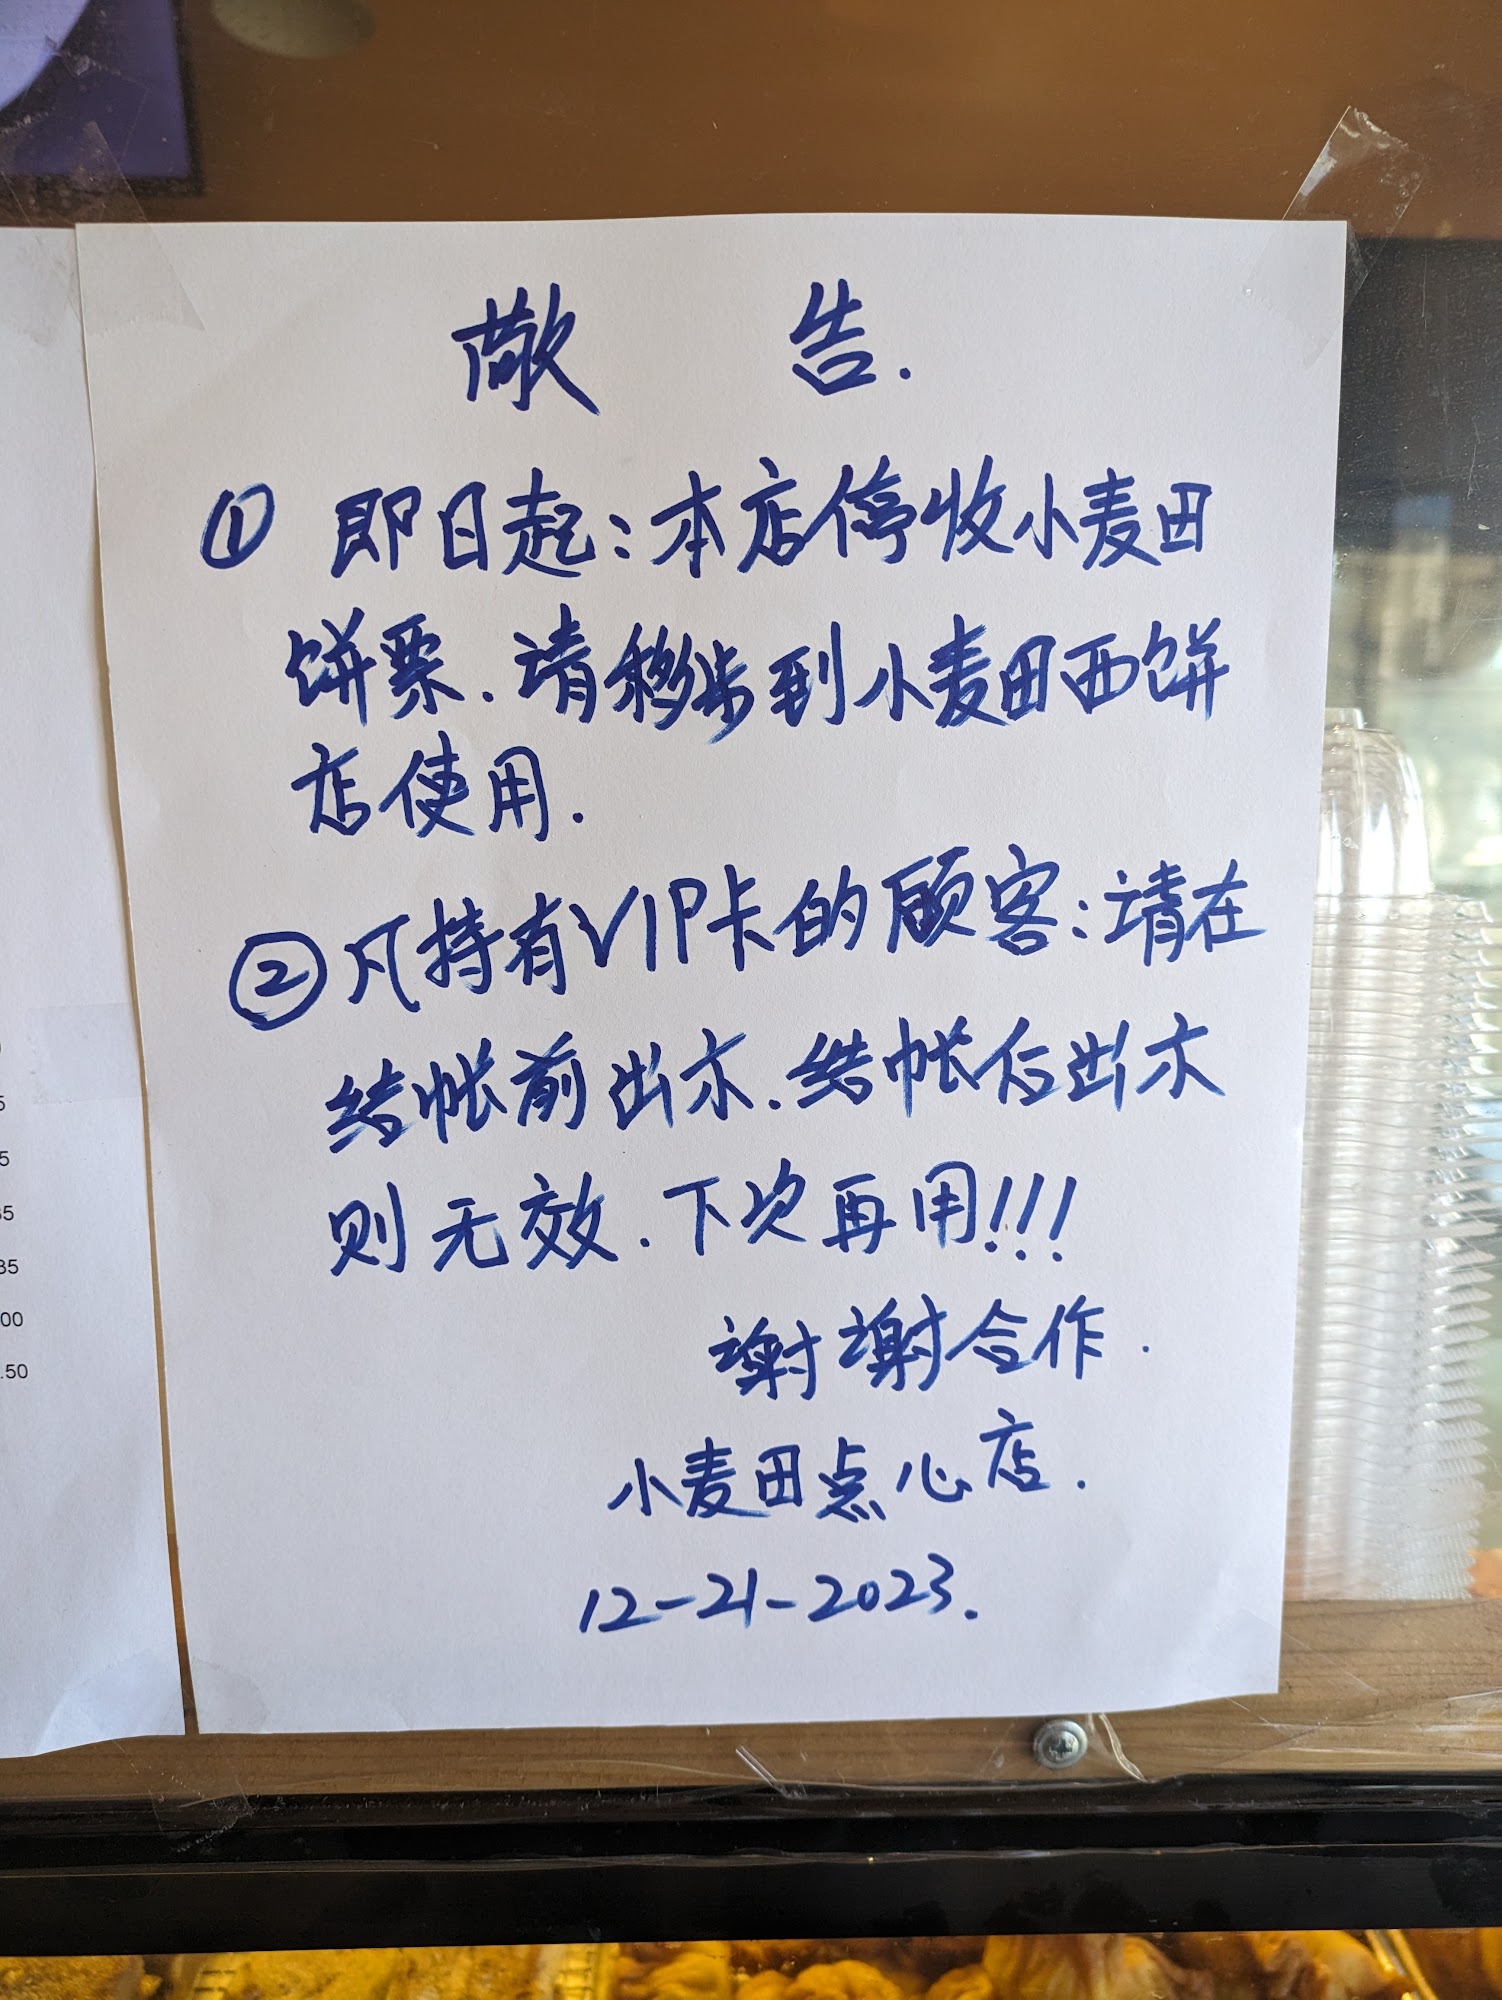 敬 告.
① 即日起:本店停收小麦田
饼票.请移步到小麦田西饼
店使用.
② 凡持有VIP卡的顾客:请在
结帐前出示.结帐后出示
则无效.下次再用!!!
謝謝合作.
小麦田点心店.
12-21-2023.
5
5
35
35
00
.50